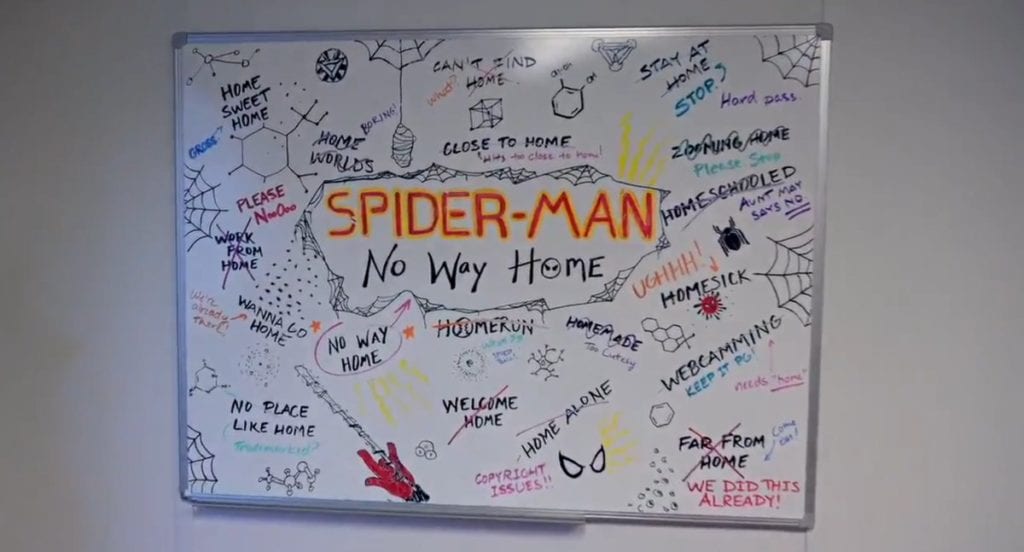 HOME
SWEET
HOME
GROSS
HOME
WORLDS
BORING!
CAN'T FIND
HOME
What?
CLOSE TO HOME
Hits too close to home!
OH
OH
STAY AT
HOME
STOP?
Hard pass.
ZOOMING HOME
Please Stop
HOMESCHOOLED
AUNT MAY
SAYS NO
PLEASE
NoOOoo
WORK
FROM
HOME
SPIDER-MAN
No Way Home
UGHHH!
HOMESICK
We're
already
there!
WANNA GO
HOME
NO WAY
HOME
HOOMERUN
HOMEMADE
Too Cutesy
WEBCAMMING
KEEP IT PG!
needs "home"
NO PLACE
LIKE HOME
Trademarked?
WELCOME
HOME
HOME ALONE
COPYRIGHT
ISSUES!!
FAR FROM
HOME
Come
on!
WE DID THIS
ALREADY!